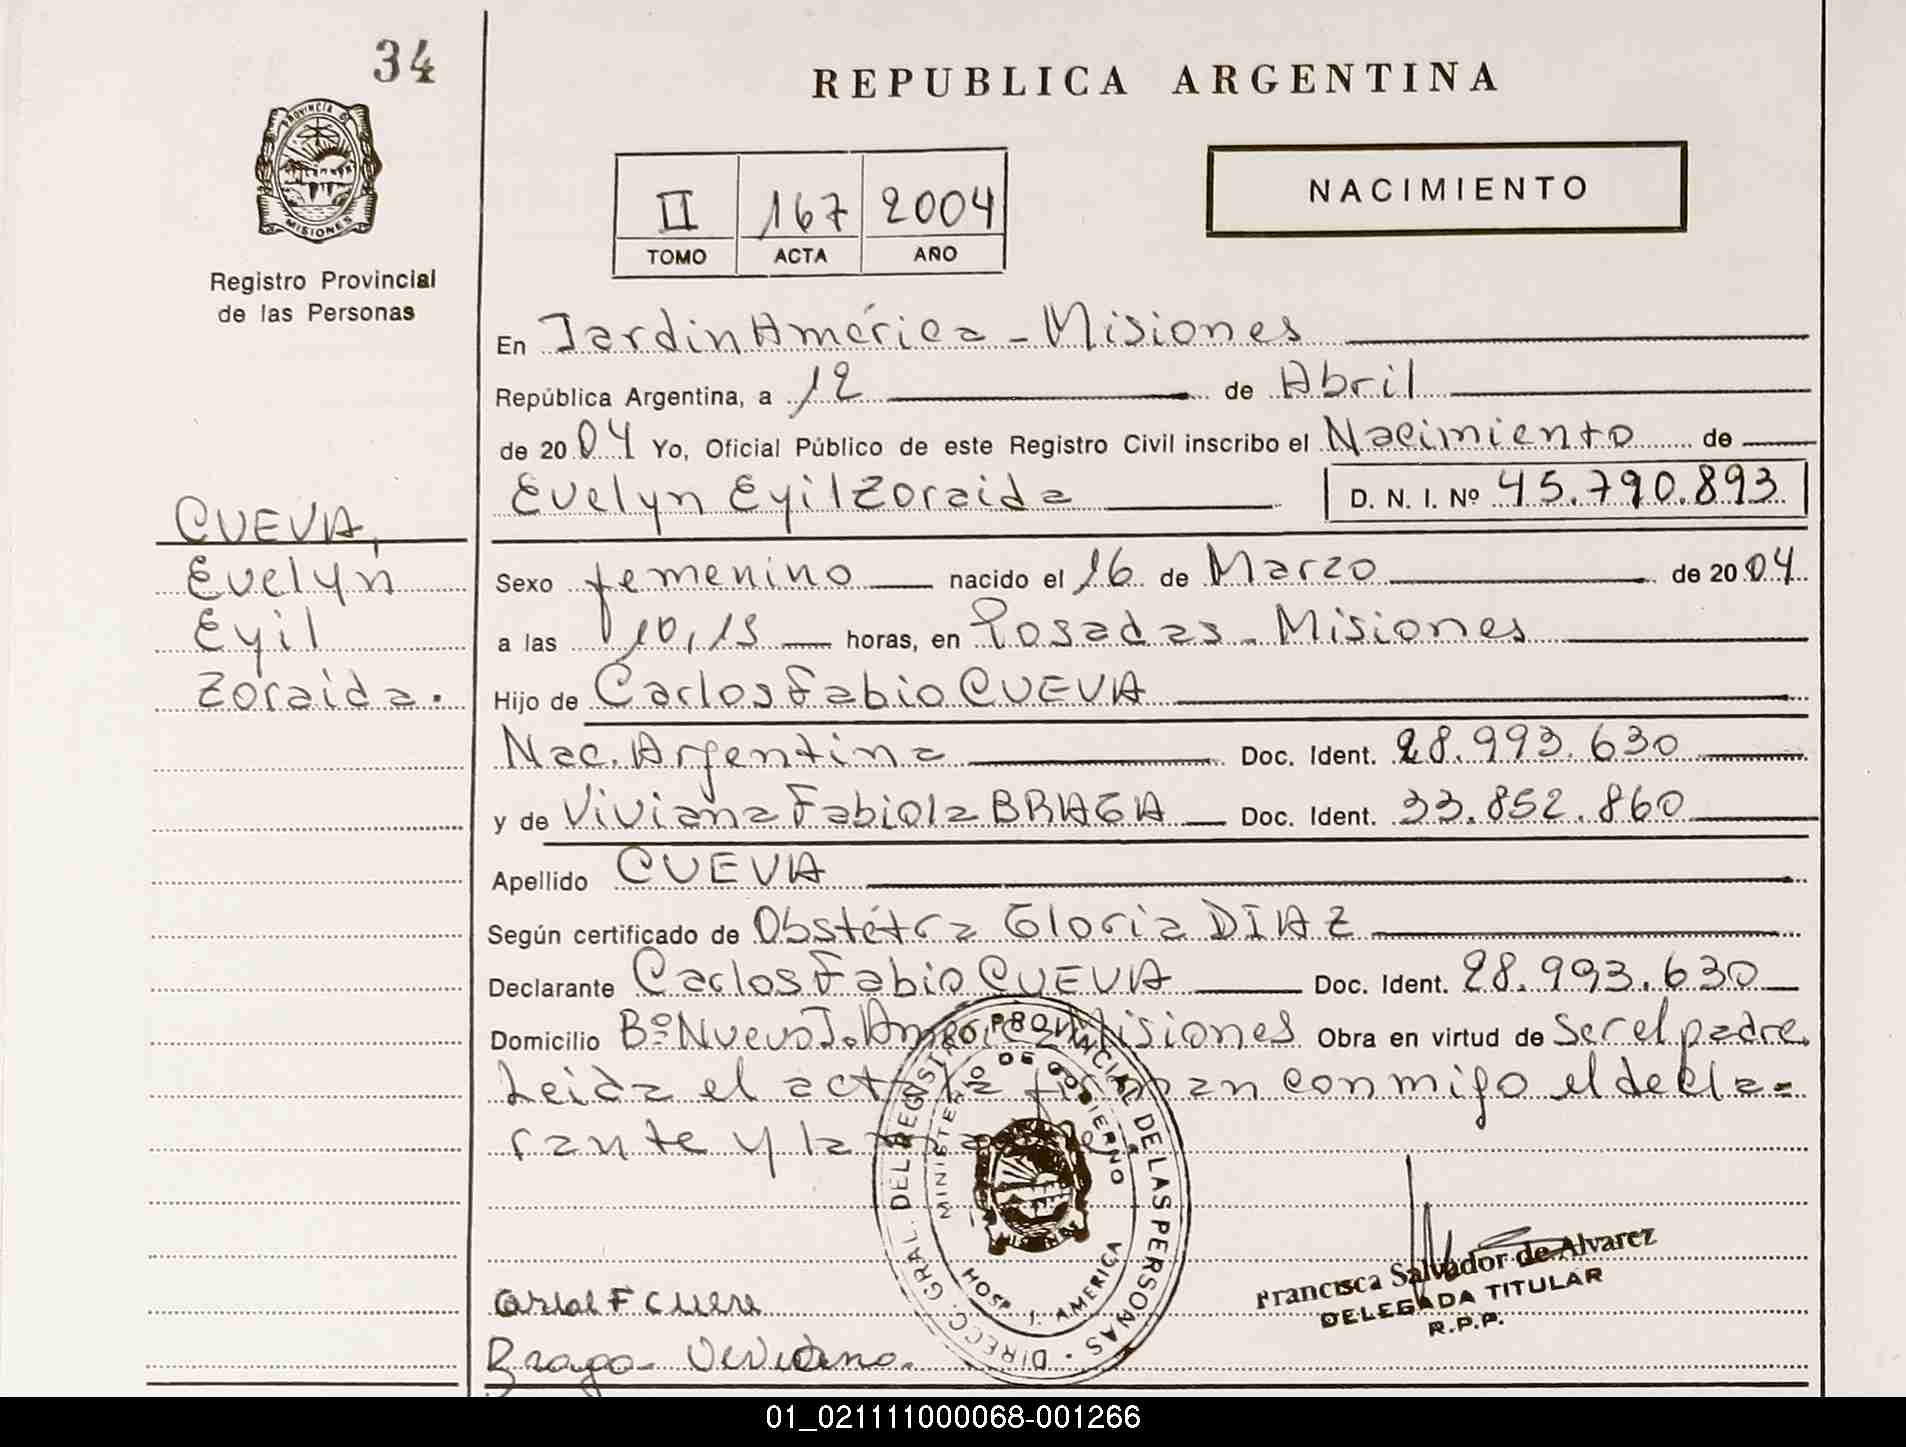 34
REPUBLICA ARGENTINA
PROVINCIA DE
MISIONES
II 167 2004
TOMO ACTA AÑO
NACIMIENTO
Registro Provincial
de las Personas
En Jardin América - Misiones
República Argentina, a 12 de Abril
de 2004 Yo, Oficial Público de este Registro Civil inscribo el Nacimiento de
Evelyn Eyil Zoraida D. N. I. Nº 45.790.893
CUEVA,
Evelyn
Eyil
Zoraida.
Sexo femenino nacido el 16 de Marzo de 2004
a las 10,15 horas, en Posadas - Misiones
Hijo de Carlos Fabio CUEVA
Nac. Argentina Doc. Ident. 28.993.630
y de Viviana Fabiola BRAGA Doc. Ident. 33.852.860
Apellido CUEVA
Según certificado de Obstétra Gloria DIAZ
Declarante Carlos Fabio CUEVA Doc. Ident. 28.993.630
Domicilio Bº Nuevo J. América Misiones Obra en virtud de Ser el padre.
Leida el acta la firman conmigo el decla=
rante y la madre
DIRECC. GRAL. DEL REGISTRO PROVINCIAL DE LAS PERSONAS
MINISTERIO DE GOBIERNO
HOSP. J. AMERICA
MISIONES
Francisca Salvador de Alvarez
DELEGADA TITULAR
R.P.P.
Braga
01_021111000068-001266